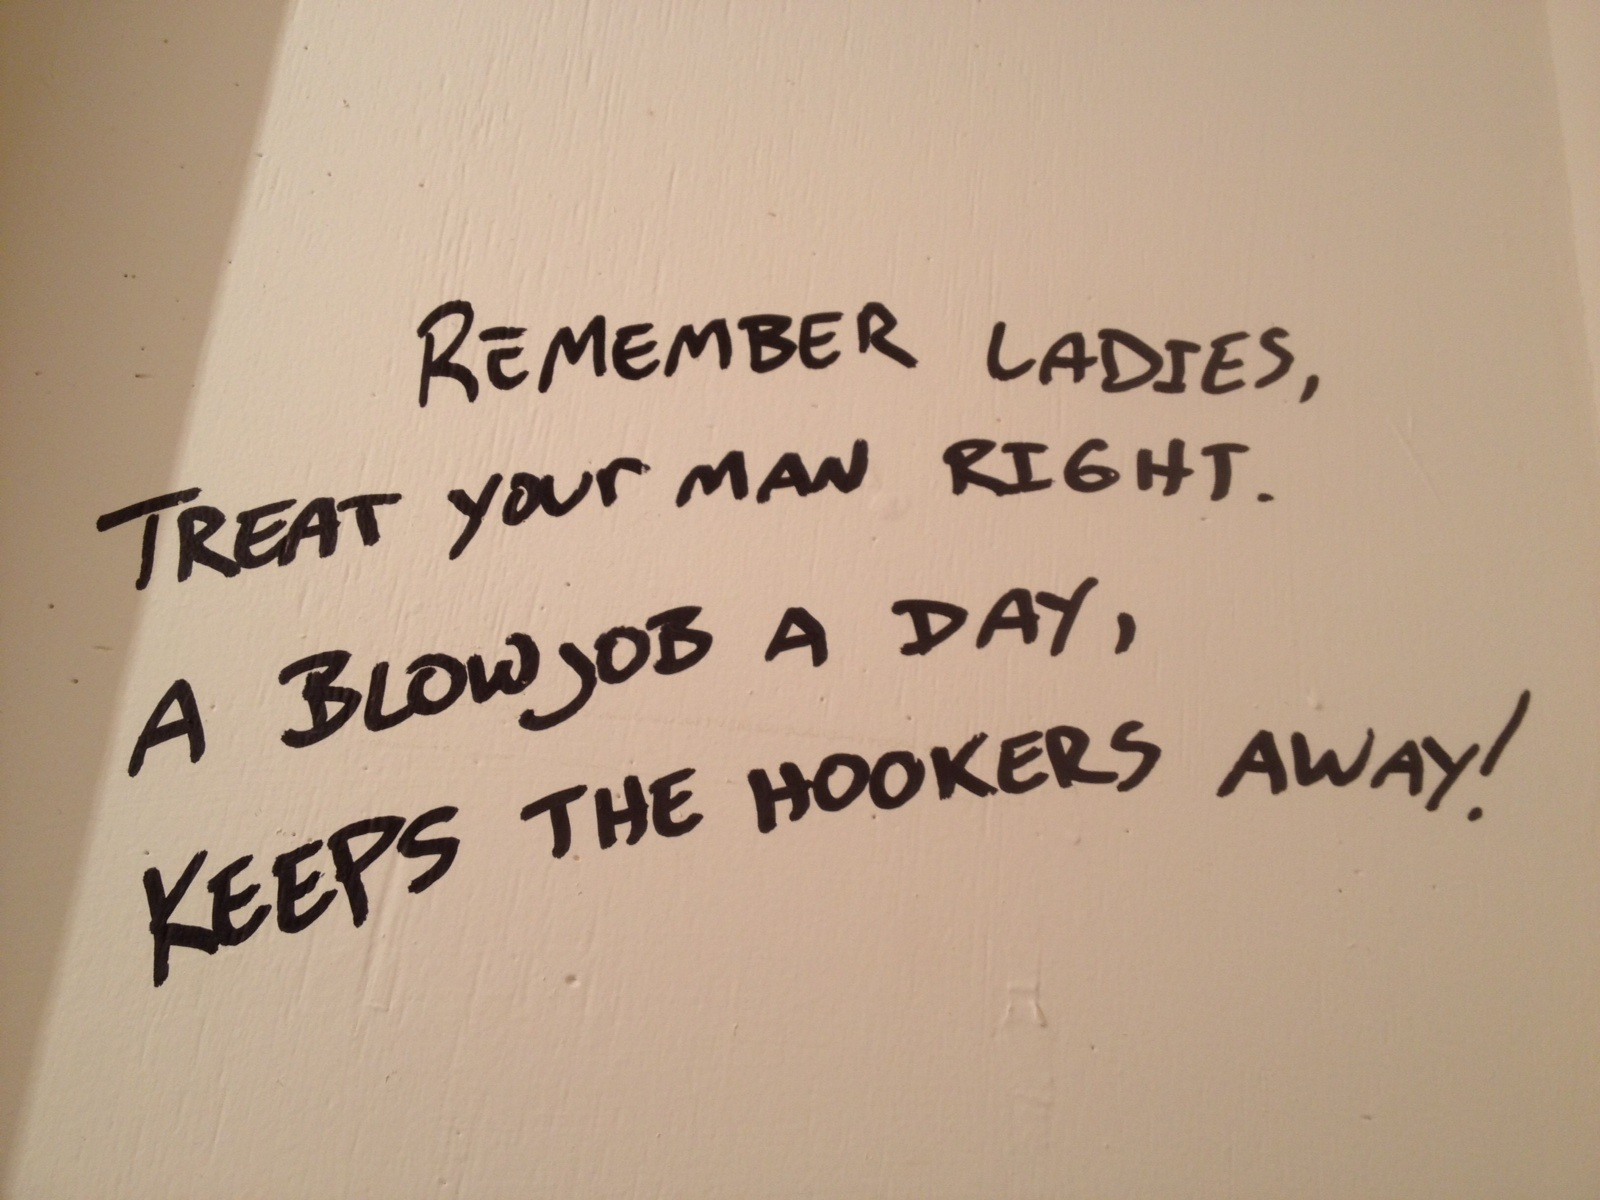 REMEMBER LADIES,
TREAT YOUr MAN RIGHT.
A BLOWJOB A DAY,
KEEPS THE HOOKERS AWAY!